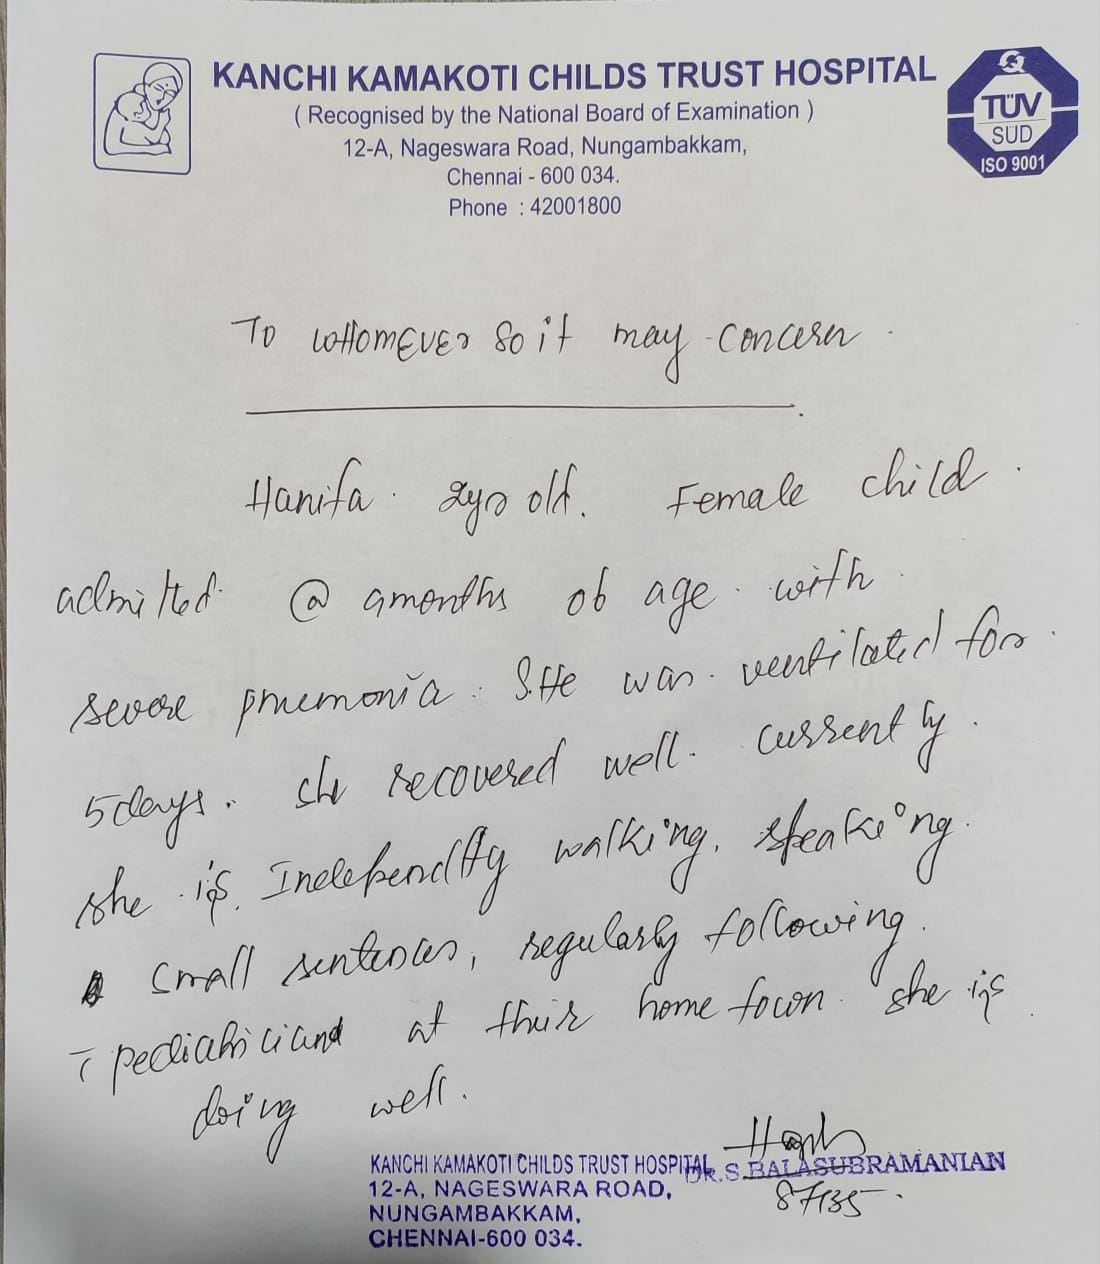 KANCHI KAMAKOTI CHILDS TRUST HOSPITAL
( Recognised by the National Board of Examination )
12-A, Nageswara Road, Nungambakkam,
Chennai - 600 034.
Phone : 42001800
TÜV
SUD
ISO 9001
To WHOMEVER So it may concern.
Hanifa. 2yrs old. Female child.
admitted @ 9months of age. with.
severe pnuemonia. SHe was. ventilated for.
5days. she recovered well. currently.
she is. Independtly walking, speaking.
small sentences, regularly following.
pediatrician at their home town. she is.
doing well.
KANCHI KAMAKOTI CHILDS TRUST HOSPITAL
DR.S.BALASUBRAMANIAN
12-A, NAGESWARA ROAD,
87135.
NUNGAMBAKKAM,
CHENNAI-600 034.